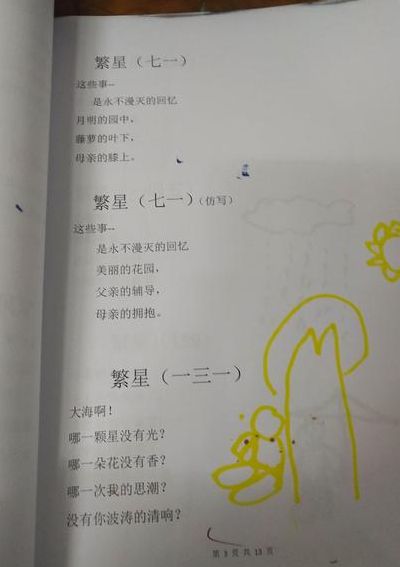 繁星（七一）
这些事--
是永不漫灭的回忆
月明的园中，
藤萝的叶下，
母亲的膝上。
繁星（七一）（仿写）
这些事--
是永不漫灭的回忆
美丽的花园，
父亲的辅导，
母亲的拥抱。
繁星（一三一）
大海啊！
哪一颗星没有光？
哪一朵花没有香？
哪一次我的思潮？
没有你波涛的清响？
第 3 页 共 13 页